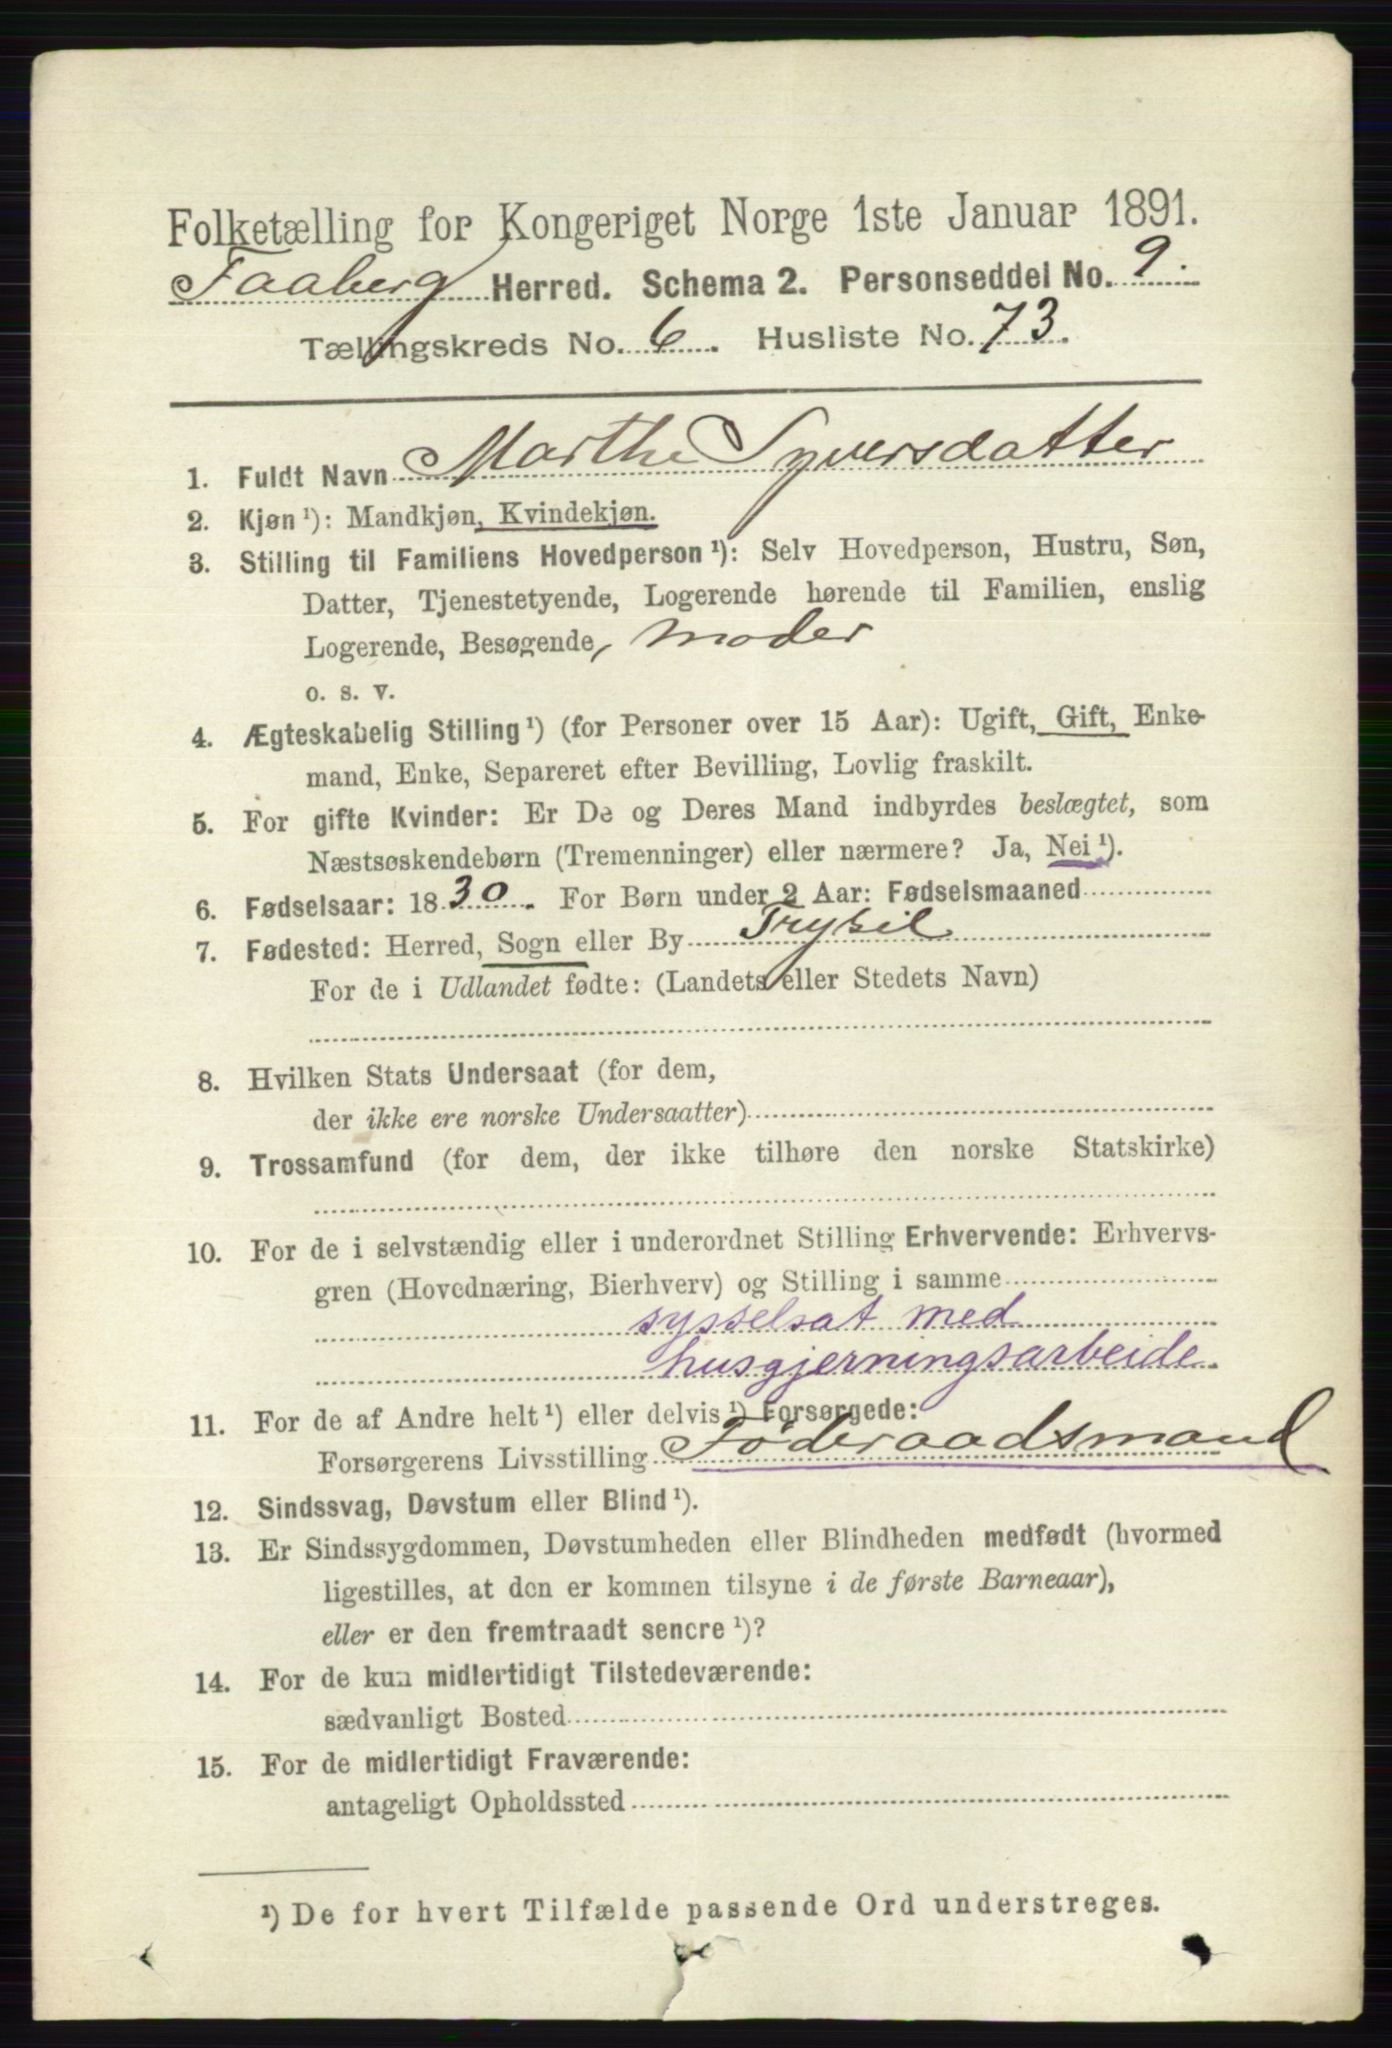 Folketælling for Kongeriget Norge 1ste Januar 1891.
Faaberg Herred. Schema 2. Personseddel No. 9.
Tællingskreds No. 6. Husliste No. 73.
1. Fuldt Navn Marthe Syversdatter
2. Kjøn ¹): Mandkjøn, Kvindekjøn.
3. Stilling til Familiens Hovedperson ¹): Selv Hovedperson, Hustru, Søn,
Datter, Tjenestetyende, Logerende hørende til Familien, enslig
Logerende, Besøgende, Moder
o. s. v.
4. Ægteskabelig Stilling ¹) (for Personer over 15 Aar): Ugift, Gift, Enke-
mand, Enke, Separeret efter Bevilling, Lovlig fraskilt.
5. For gifte Kvinder: Er De og Deres Mand indbyrdes beslægtet, som
Næstsøskendebørn (Tremenninger) eller nærmere? Ja, Nei ¹).
6. Fødselsaar: 1830. For Børn under 2 Aar: Fødselsmaaned
7. Fødested: Herred, Sogn eller By Trysil
For de i Udlandet fødte: (Landets eller Stedets Navn)
8. Hvilken Stats Undersaat (for dem,
der ikke ere norske Undersaatter)
9. Trossamfund (for dem, der ikke tilhøre den norske Statskirke)
10. For de i selvstændig eller i underordnet Stilling Erhvervende: Erhvervs-
gren (Hovednæring, Bierhverv) og Stilling i samme
sysselsat med
husgjerningsarbeide.
11. For de af Andre helt ¹) eller delvis ¹) Forsørgede:
Forsørgerens Livsstilling Føderaadsmand
12. Sindssvag, Døvstum eller Blind ¹).
13. Er Sindssygdommen, Døvstumheden eller Blindheden medfødt (hvormed
ligestilles, at den er kommen tilsyne i de første Barneaar),
eller er den fremtraadt senere ¹)?
14. For de kun midlertidigt Tilstedeværende:
sædvanligt Bosted
15. For de midlertidigt Fraværende:
antageligt Opholdssted
¹) De for hvert Tilfælde passende Ord understreges.